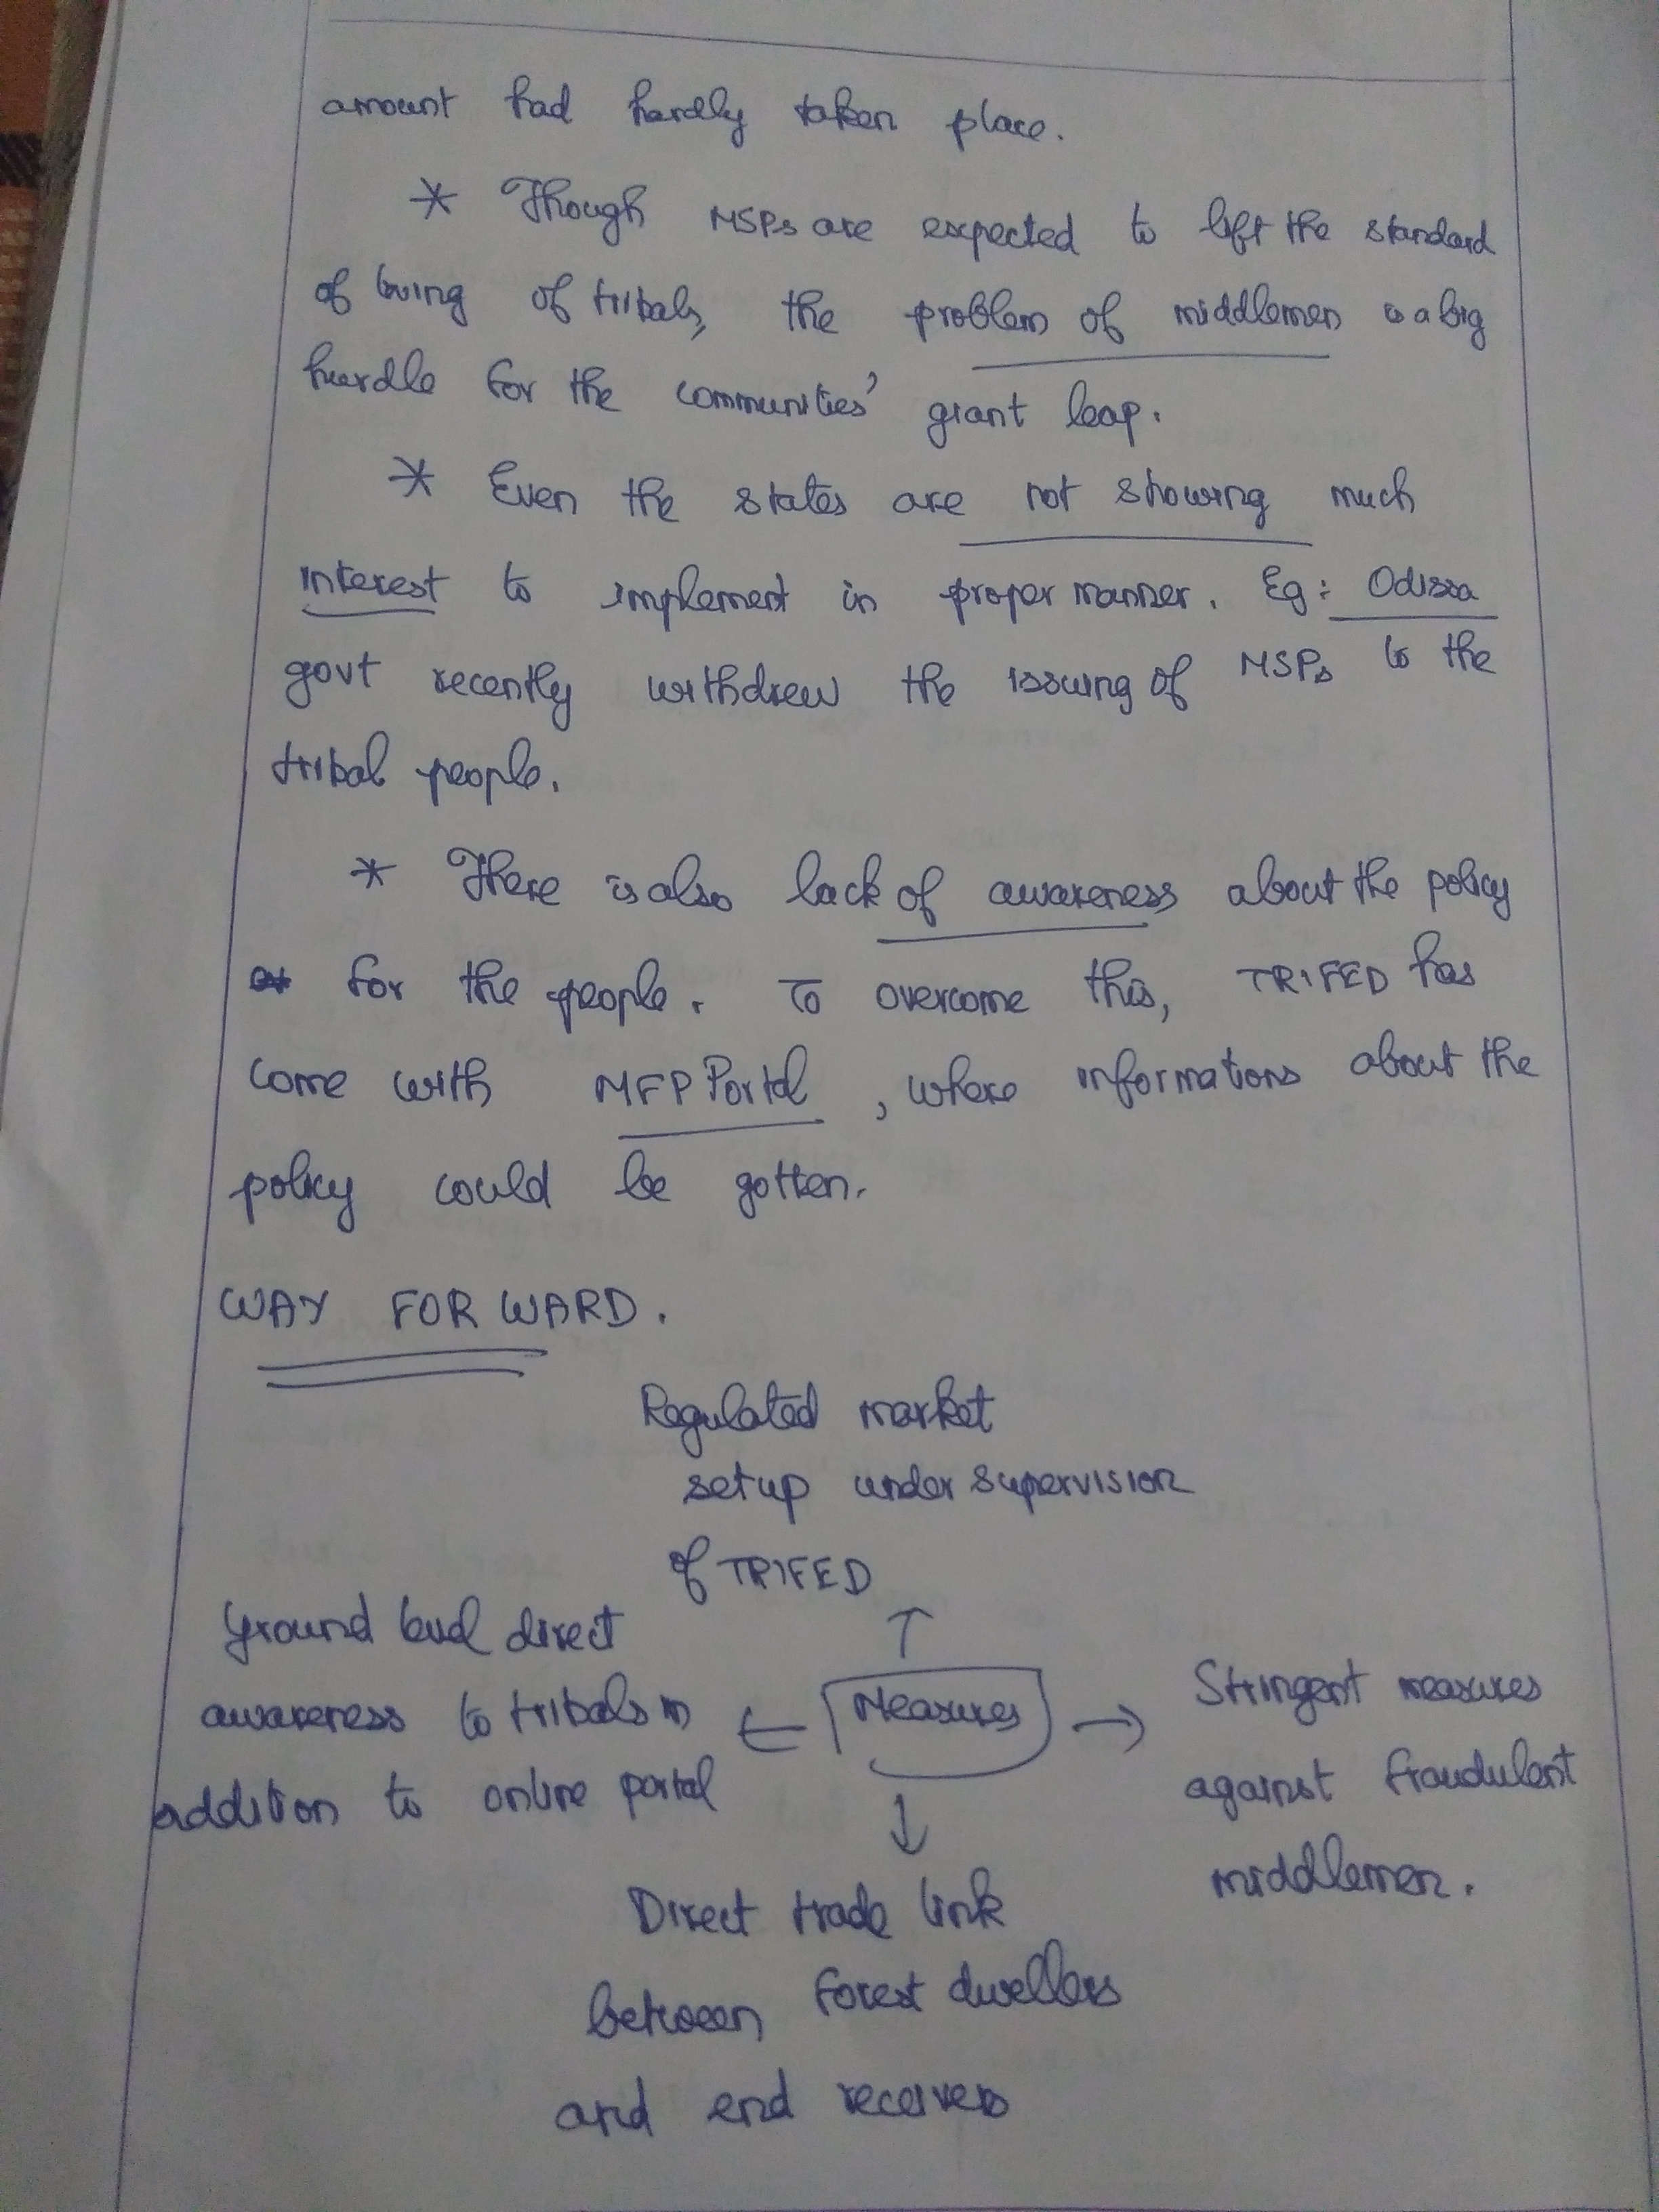 amount had hardly taken place.
* Though MSPs are expected to lift the standard
of living of tribals, the problem of middlemen is a big
hurdle for the communities' giant leap.
* Even the states are not showing much
interest to implement in proper manner. Eg: Odissa
govt recently withdrew the issuing of MSPs to the
tribal people.
* There is also lack of awareness about the policy
for the people. To overcome this, TRIFED has
come with MFP Portal, where informations about the
policy could be gotten.
WAY FORWARD.
Regulated market
setup under supervision
of TRIFED
Ground level direct
awareness to tribals in
addition to online portal
Measures
Stringent measures
against fraudulent
middlemen.
Direct trade link
between forest dwellers
and end receivers